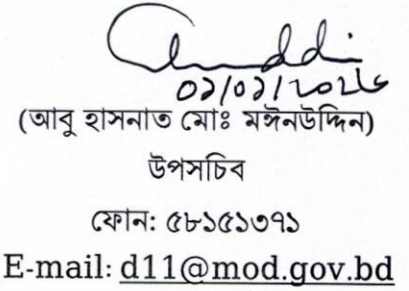 ০১/০১/২০২৬
(আবু হাসনাত মোঃ মঈনউদ্দিন)
উপসচিব
ফোন: ৫৮১৫১৩৭১
E-mail: d11@mod.gov.bd